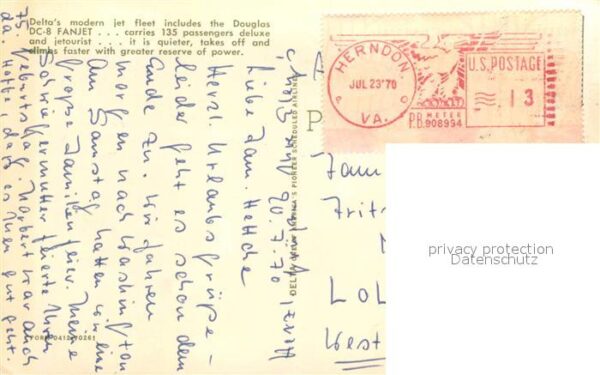 Delta's modern jet fleet includes the Douglas
DC-8 FANJET . . . carries 135 passengers deluxe
and jetourist . . . it is quieter, takes off and
climbs faster with greater reserve of power.
HERNDON,
JUL 23'70
VA.
U.S. POSTAGE
13
P.B. METER
908954
20.7.70
Liebe Fam. Hettche
Herzl. Urlaubsgrüße –
leider geht es schon dem
Ende zu. Wir fahren
morgen nach Washington
Am Samstag hatten wir eine
große Familienfeier. Meine
Schwiegermutter feierte Ihren
75. Geburtstag. Norbert war auch
da. Hoffe, daß es Ihnen gut geht.
Herzl.
P
Fam
Frit
LOL
West
privacy protection
Datenschutz